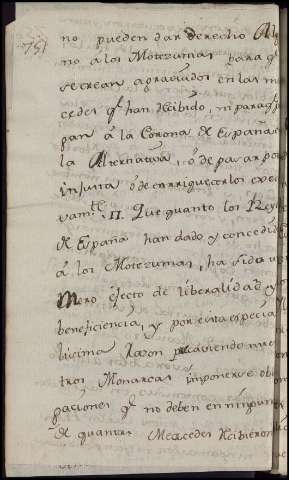 751
no pueden dar derecho Al
no a los Motezumas para q
se crean agraciados en las m
cedes q.e han Recibido, ni para q
gan á la Corona de España
la Alternativa, ó de pasar por
injusta ó de enrriquecerlos exce
vam.te II. Que quanto los Rey
de España han dado y concedid
á los Motezumas, ha sido u
mero efecto de liberalidad y
beneficiencia, y por esta especia
lissima Razon pudiendo nues
tros Monarcas imponerse obli
gaciones q.e no deben en ningun
de quantas Mercedes Recibieron